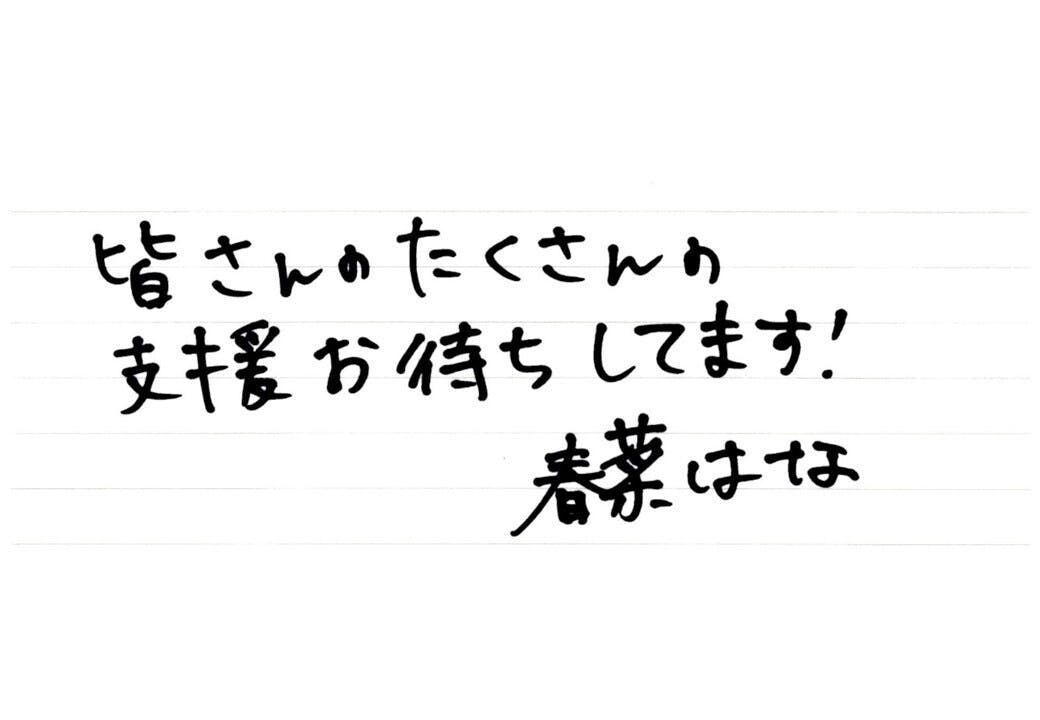 皆さんのたくさんの
支援お待ちしてます!
春菜はな